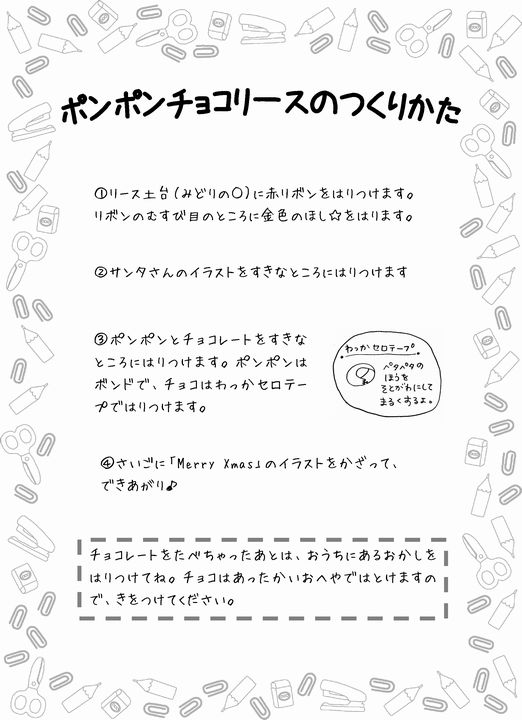 ポンポンチョコリースのつくりかた
①リース土台(みどりの〇)に赤リボンをはりつけます。
リボンのむすび目のところに金色のほし☆をはります。
②サンタさんのイラストをすきなところにはりつけます
③ポンポンとチョコレートをすきな
ところにはりつけます。ポンポンは
ボンドで、チョコはわっかセロテー
プではりつけます。
わっかセロテープ
ペタペタの
ほうを
そとがわにして
まるくするよ。
④さいごに「Merry Xmas」のイラストをかざって、
できあがり♪
チョコレートをたべちゃったあとは、おうちにあるおかしを
はりつけてね。チョコはあったかいおへやではとけますの
で、きをつけてください。